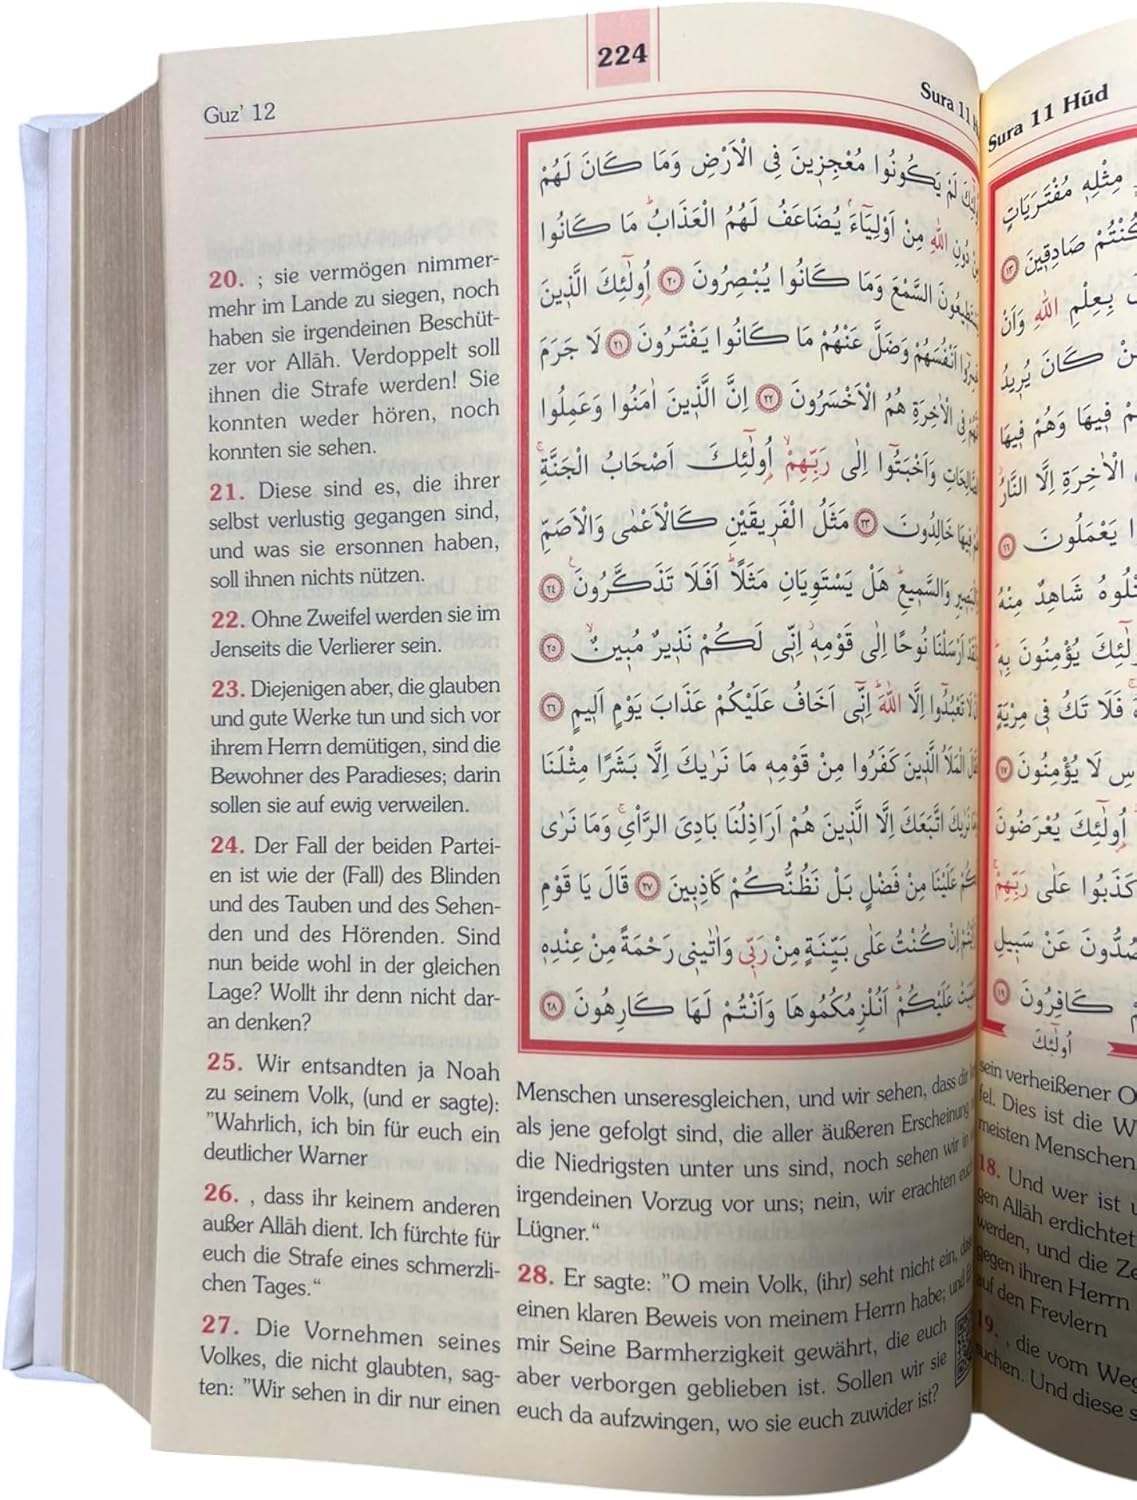 224
Guz' 12
Sura 11
20. ; sie vermögen nimmer-
mehr im Lande zu siegen, noch
haben sie irgendeinen Beschüt-
zer vor Allāh. Verdoppelt soll
ihnen die Strafe werden! Sie
konnten weder hören, noch
konnten sie sehen.
21. Diese sind es, die ihrer
selbst verlustig gegangen sind,
und was sie ersonnen haben,
soll ihnen nichts nützen.
22. Ohne Zweifel werden sie im
Jenseits die Verlierer sein.
23. Diejenigen aber, die glauben
und gute Werke tun und sich vor
ihrem Herrn demütigen, sind die
Bewohner des Paradieses; darin
sollen sie auf ewig verweilen.
24. Der Fall der beiden Partei-
en ist wie der (Fall) des Blinden
und des Tauben und des Sehen-
den und des Hörenden. Sind
nun beide wohl in der gleichen
Lage? Wollt ihr denn nicht dar-
an denken?
25. Wir entsandten ja Noah
zu seinem Volk, (und er sagte):
"Wahrlich, ich bin für euch ein
deutlicher Warner
26. , dass ihr keinem anderen
außer Allāh dient. Ich fürchte für
euch die Strafe eines schmerzli-
chen Tages.“
27. Die Vornehmen seines
Volkes, die nicht glaubten, sag-
ten: "Wir sehen in dir nur einen
لَمْ يَكُونُوا مُعْجِزِينَ فِي الْاَرْضِ وَمَا كَانَ لَهُمْ
دُونِ اللّٰهِ مِنْ اَوْلِيَٓاءَۘ يُضَاعَفُ لَهُمُ الْعَذَابُۜ مَا كَانُوا
السَّمْعَ وَمَا كَانُوا يُبْصِرُونَ ﴿٢٠﴾ اُو۬لٰٓئِكَ الَّذ۪ينَ
اَنْفُسَهُمْ وَضَلَّ عَنْهُمْ مَا كَانُوا يَفْتَرُونَ ﴿٢١﴾ لَا جَرَمَ
فِي الْاٰخِرَةِ هُمُ الْاَخْسَرُونَ ﴿٢٢﴾ اِنَّ الَّذ۪ينَ اٰمَنُوا وَعَمِلُوا
وَاَخْبَتُٓوا اِلٰى رَبِّهِمْۙ اُو۬لٰٓئِكَ اَصْحَابُ الْجَنَّةِۚ
خَالِدُونَ ﴿٢٣﴾ مَثَلُ الْفَر۪يقَيْنِ كَالْاَعْمٰى وَالْاَصَمِّ
وَالسَّم۪يعِۜ هَلْ يَسْتَوِيَانِ مَثَلًاۜ اَفَلَا تَذَكَّرُونَ۟ ﴿٢٤﴾
اَرْسَلْنَا نُوحًا اِلٰى قَوْمِه۪ۘ اِنّ۪ي لَكُمْ نَذ۪يرٌ مُب۪ينٌۙ ﴿٢٥﴾
تَعْبُدُٓوا اِلَّا اللّٰهَۜ اِنّ۪ٓي اَخَافُ عَلَيْكُمْ عَذَابَ يَوْمٍ اَل۪يمٍ ﴿٢٦﴾
الْمَلَاُ الَّذ۪ينَ كَفَرُوا مِنْ قَوْمِه۪ مَا نَرٰيكَ اِلَّا بَشَرًا مِثْلَنَا
اتَّبَعَكَ اِلَّا الَّذ۪ينَ هُمْ اَرَاذِلُنَا بَادِيَ الرَّأْيِۚ وَمَا نَرٰى
عَلَيْنَا مِنْ فَضْلٍ بَلْ نَظُنُّكُمْ كَاذِب۪ينَ ﴿٢٧﴾ قَالَ يَا قَوْمِ
اِنْ كُنْتُ عَلٰى بَيِّنَةٍ مِنْ رَبّ۪ي وَاٰتٰين۪ي رَحْمَةً مِنْ عِنْدِه۪
عَلَيْكُمْۜ اَنُلْزِمُكُمُوهَا وَاَنْتُمْ لَهَا كَارِهُونَ ﴿٢٨﴾
Menschen unseresgleichen, und wir sehen, dass dir
als jene gefolgt sind, die aller äußeren Erscheinung
die Niedrigsten unter uns sind, noch sehen wir in
irgendeinen Vorzug vor uns; nein, wir erachten
Lügner.“
28. Er sagte: "O mein Volk, (ihr) seht nicht ein,
einen klaren Beweis von meinem Herrn habe; und
mir Seine Barmherzigkeit gewährt, die euch
aber verborgen geblieben ist. Sollen wir sie
euch da aufzwingen, wo sie euch zuwider ist?
Sura 11 Hūd
مِثْلِه۪ مُفْتَرَيَاتٍ
كُنْتُمْ صَادِق۪ينَ ﴿١٣﴾
بِعِلْمِ اللّٰهِ وَاَنْ
كَانَ يُر۪يدُ
ف۪يهَا وَهُمْ ف۪يهَا
الْاٰخِرَةِ اِلَّا النَّارُ
يَعْمَلُونَ ﴿١٦﴾
شَاهِدٌ مِنْهُ
يُؤْمِنُونَ بِه۪ۜ
فَلَا تَكُ ف۪ي مِرْيَةٍ
لَا يُؤْمِنُونَ ﴿١٧﴾
اُو۬لٰٓئِكَ يُعْرَضُونَ
كَذَبُوا عَلٰى رَبِّهِمْۚ
عَنْ سَب۪يلِ
كَافِرُونَ ﴿١٩﴾
اُو۬لٰٓئِكَ
sein verheißener
fel. Dies ist die
meisten Menschen
18. Und wer ist
gen Allāh erdichtet
werden, und die
gegen ihren Herrn
auf den Frevlern
19. , die vom
suchen. Und diese